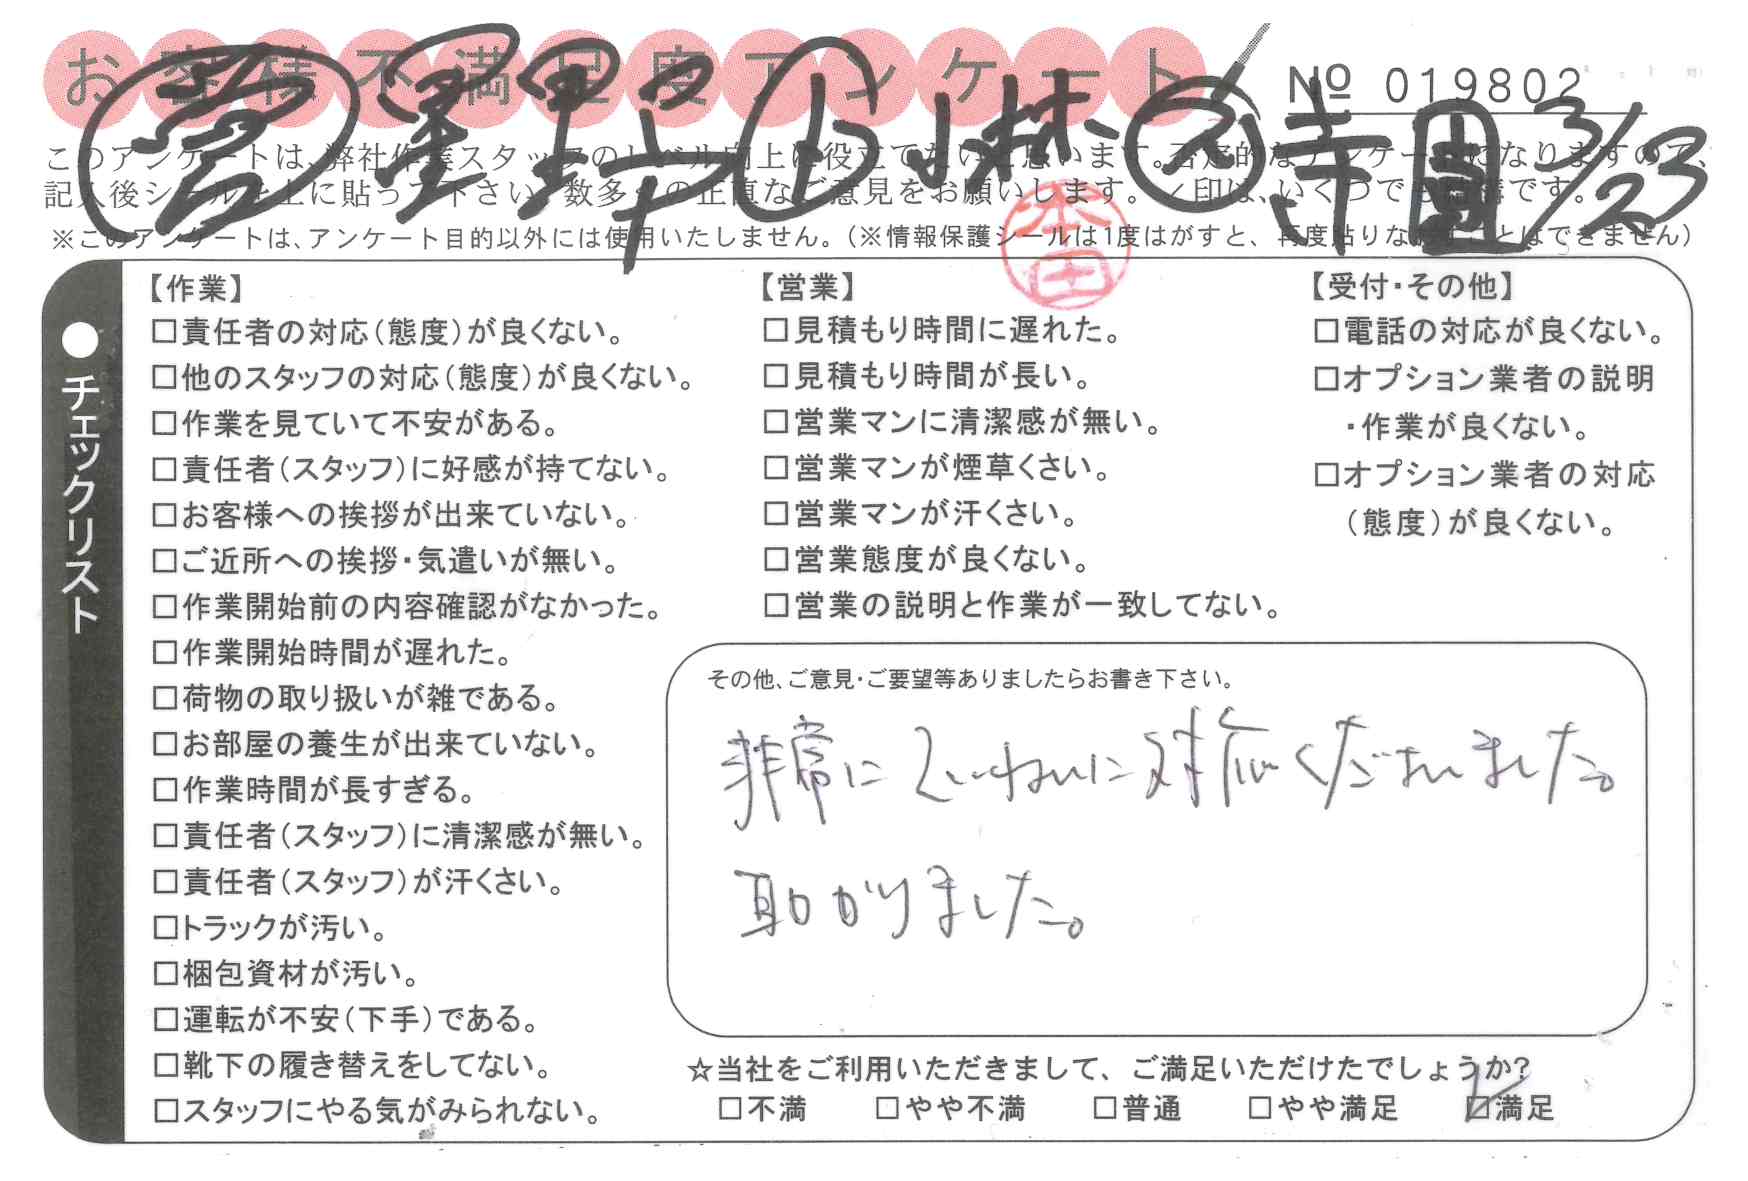 お客様不満足度アンケート
№ 019802
営 星野 上 小林 ス 寺園 3/23
このアンケートは、弊社作業スタッフのレベル向上に役立てたいと思います。否定的なアンケートになりますので、
記入後シールを上に貼って下さい。数多くの正直なご意見をお願いします。✓印は、いくつでも結構です。
※このアンケートは、アンケート目的以外には使用いたしません。(※情報保護シールは1度はがすと、再度貼りなおすことはできません)
本田
●チェックリスト
【作業】
□責任者の対応(態度)が良くない。
□他のスタッフの対応(態度)が良くない。
□作業を見ていて不安がある。
□責任者(スタッフ)に好感が持てない。
□お客様への挨拶が出来ていない。
□ご近所への挨拶・気遣いが無い。
□作業開始前の内容確認がなかった。
□作業開始時間が遅れた。
□荷物の取り扱いが雑である。
□お部屋の養生が出来ていない。
□作業時間が長すぎる。
□責任者(スタッフ)に清潔感が無い。
□責任者(スタッフ)が汗くさい。
□トラックが汚い。
□梱包資材が汚い。
□運転が不安(下手)である。
□靴下の履き替えをしてない。
□スタッフにやる気がみられない。
【営業】
□見積もり時間に遅れた。
□見積もり時間が長い。
□営業マンに清潔感が無い。
□営業マンが煙草くさい。
□営業マンが汗くさい。
□営業態度が良くない。
□営業の説明と作業が一致してない。
【受付・その他】
□電話の対応が良くない。
□オプション業者の説明
・作業が良くない。
□オプション業者の対応
(態度)が良くない。
その他、ご意見・ご要望等ありましたらお書き下さい。
非常にていねいに対応くださいました。
助かりました。
☆当社をご利用いただきまして、ご満足いただけたでしょうか?
□不満 □やや不満 □普通 □やや満足 ☑満足